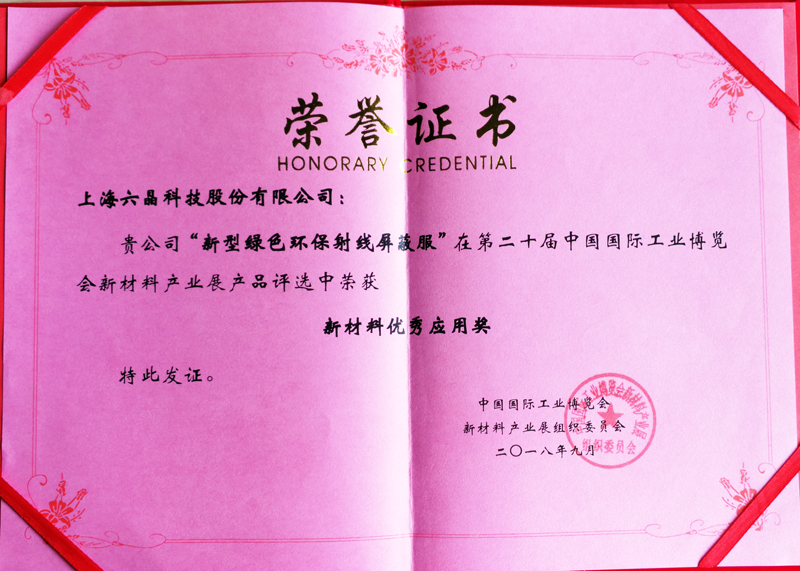 荣誉证书
HONORARY CREDENTIAL
上海六晶科技股份有限公司：
贵公司“新型绿色环保射线屏蔽服”在第二十届中国国际工业博览
会新材料产业展产品评选中荣获
新材料优秀应用奖
特此发证。
中国国际工业博览会
新材料产业展组织委员会
二〇一八年九月
中国国际工业博览会新材料产业展
组织委员会